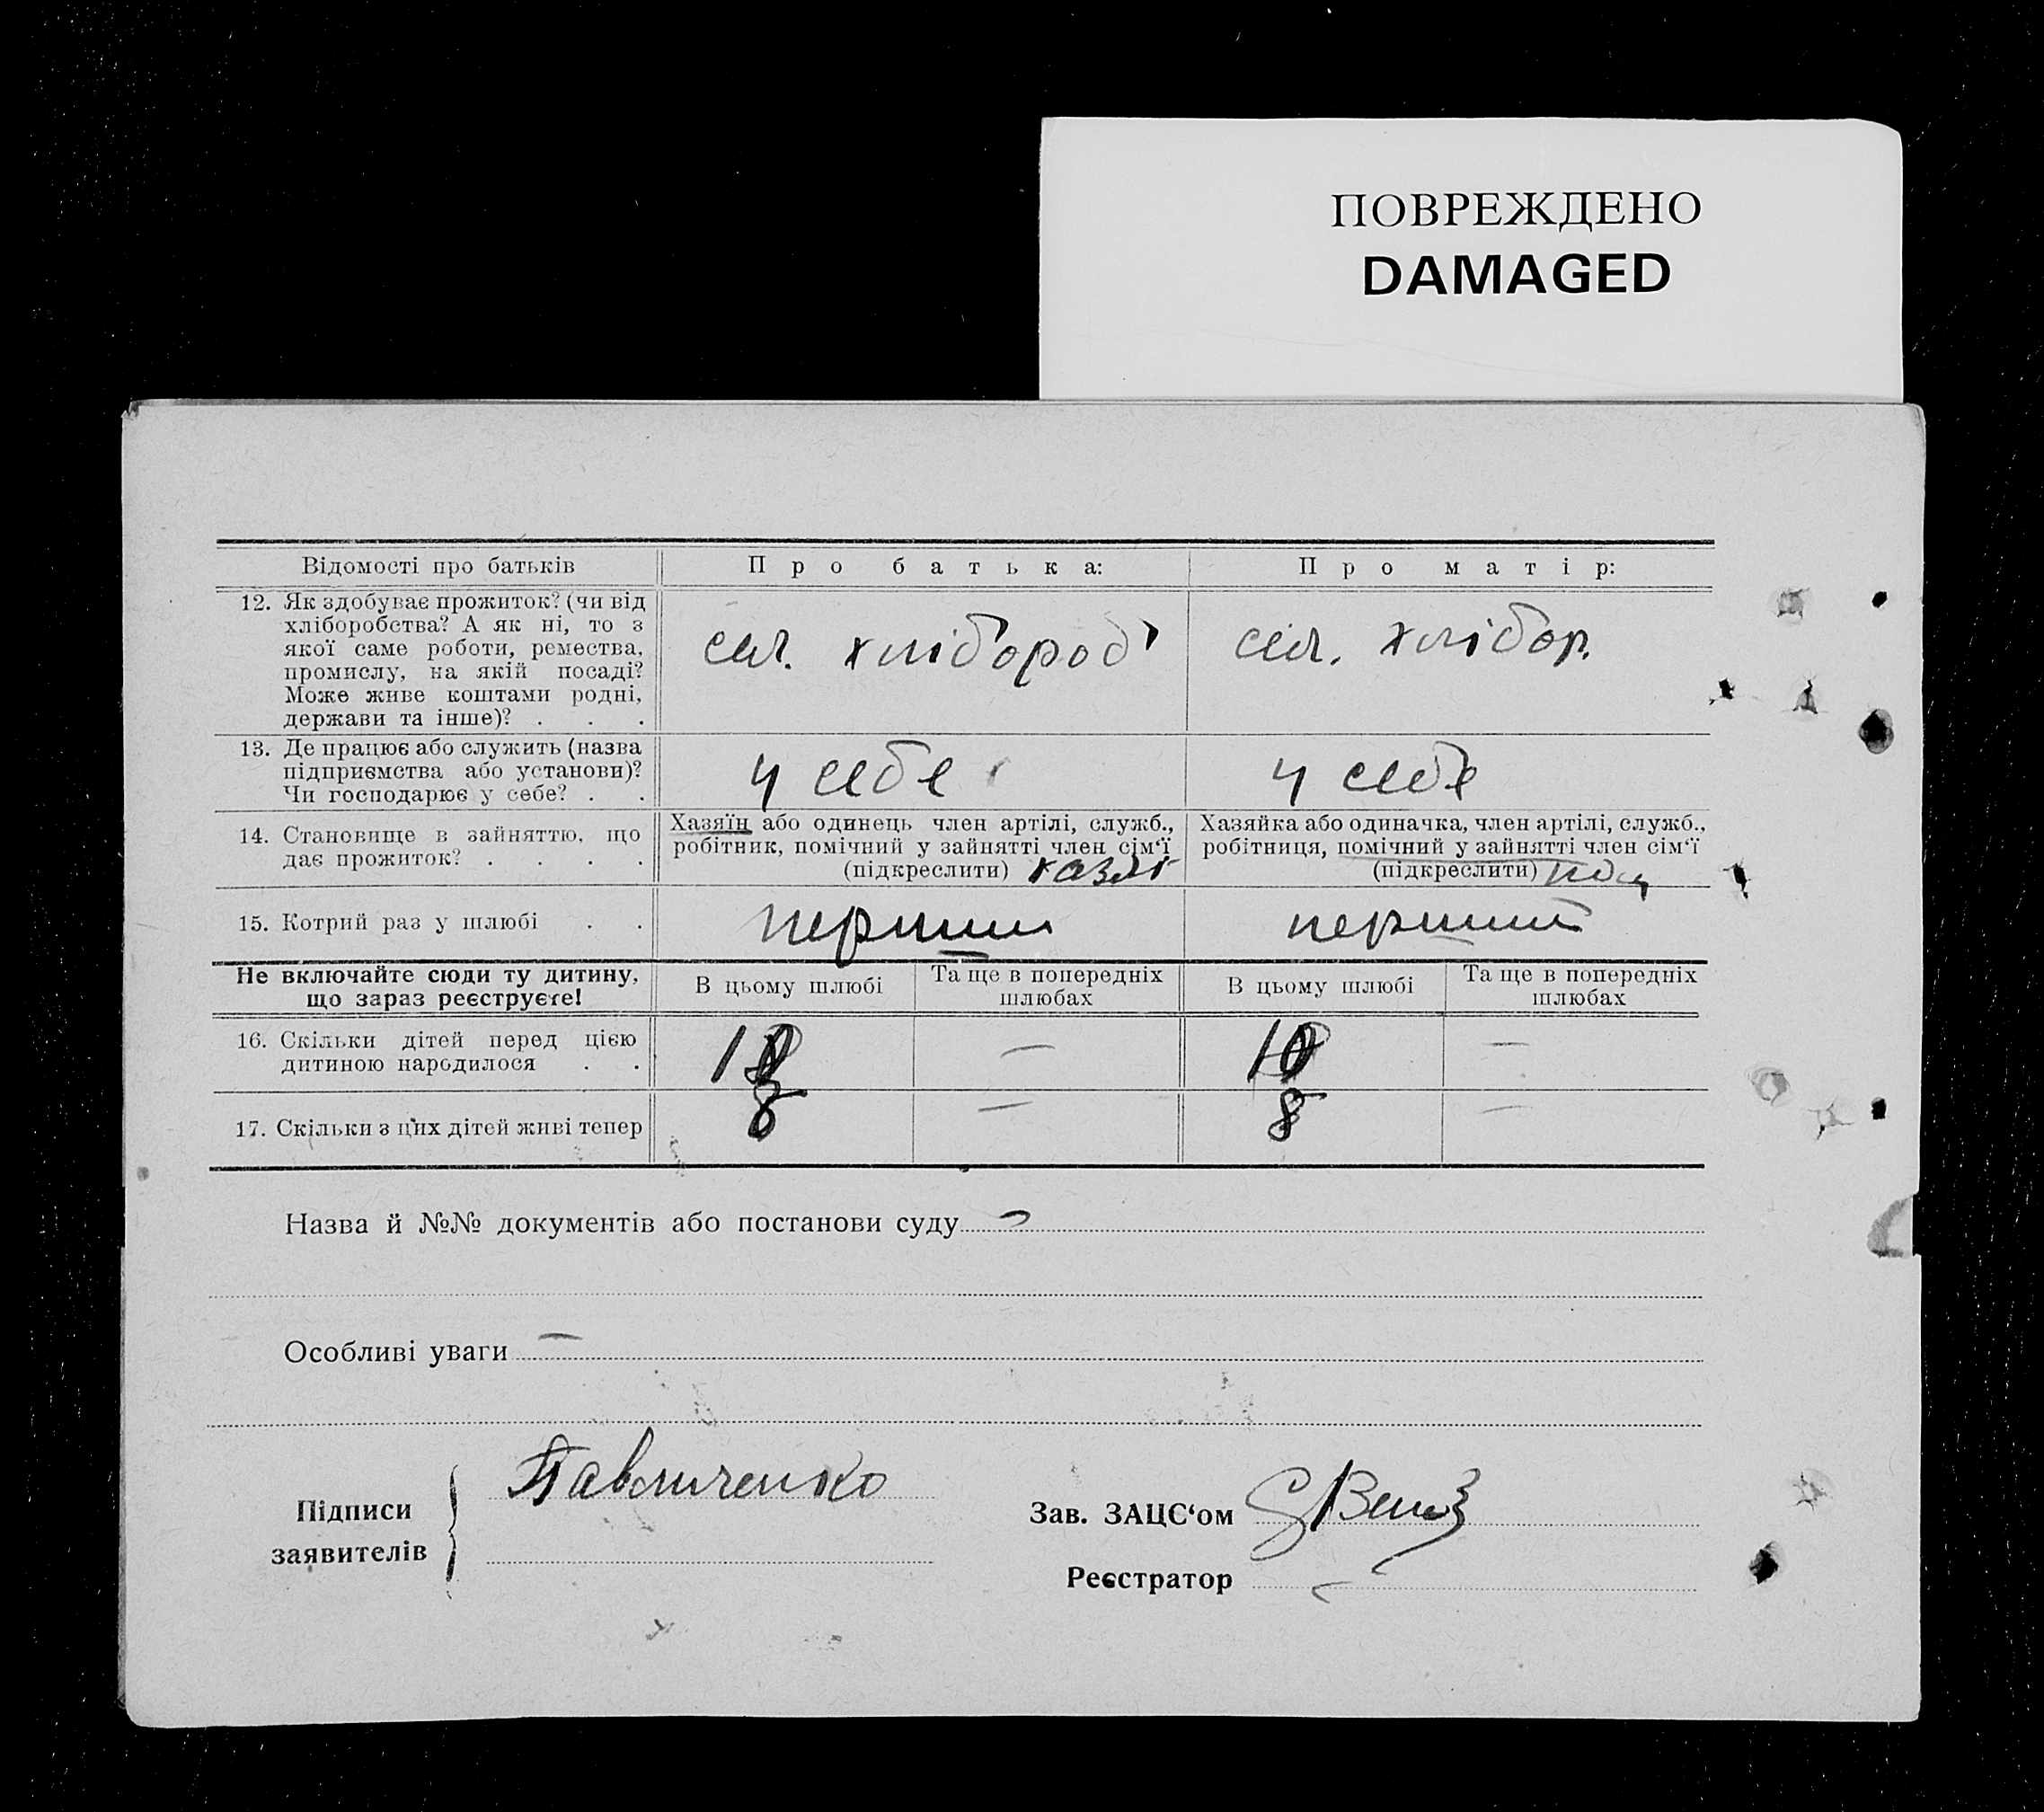 ПОВРЕЖДЕНО
DAMAGED
Відомості про батьків
Про батька:
Про матір:
12. Як здобуває прожиток? (чи від
хліборобства? А як ні, то з
якої саме роботи, ремества,
промислу, на якій посаді?
Може живе коштами родні,
держави та інше)? . . .
сел. хлібороб
сел. хлібор.
13. Де працює або служить (назва
підприємства або установи)?
Чи господарює у себе? . .
у себе
у себе
14. Становище в зайняттю, що
дає прожиток? . . . .
Хазяїн або одинець член артілі, служб.,
робітник, помічний у зайнятті член сім'ї
(підкреслити)
Хазяйка або одиначка, член артілі, служб.,
робітниця, помічний у зайнятті член сім'ї
(підкреслити)
15. Котрий раз у шлюбі . .
перший
перший
Не включайте сюди ту дитину,
що зараз реєструєте!
В цьому шлюбі
Та ще в попередніх
шлюбах
В цьому шлюбі
Та ще в попередніх
шлюбах
16. Скільки дітей перед цією
дитиною народилося . .
10
—
10
—
17. Скільки з цих дітей живі тепер
8
—
8
—
Назва й №№ документів або постанови суду
Особливі уваги —
Підписи
заявителів
Павличенко
Зав. ЗАЦС'ом
Реєстратор